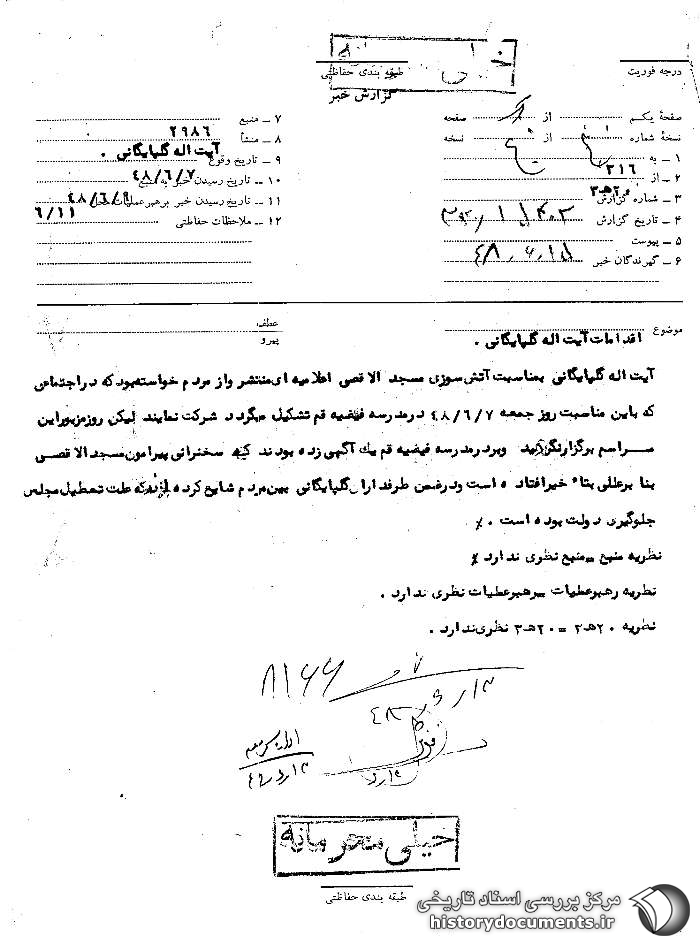 خیلی
طبقه بندی حفاظتی
گزارش خبر
درجه فوریت
صفحهٔ یکم از صفحه
نسخهٔ شماره از نسخه
۱ ــ به
۲ ــ از ۳۱۶
۳ ــ شماره گزارش
۴ ــ تاریخ گزارش
۵ ــ پیوست
۶ ــ گیرندگان خبر
۷ ــ منبع
۸ ــ منشأ ۲۹۸۶
۹ ــ تاریخ وقوع آیت اله گلپایگانی .
۱۰ ــ تاریخ رسیدن خبر به منبع ۴۸/۶/۷
۱۱ ــ تاریخ رسیدن خبر برهبر عملیات ۴۸/۶/۹
۱۲ ــ ملاحظات حفاظتی ۶/۱۱
موضوع
عطف
پیرو
اقدامات آیت اله گلپایگانی .
آیت اله گلپایگانی بمناسبت آتش سوزی مسجد الاقصی اعلامیه ای منتشر واز مردم خواسته بود که در اجتماعی
که باین مناسبت روز جمعه ۴۸/۶/۷ در مدرسه فیضیه قم تشکیل میگردد شرکت نمایند لیکن روز مزبور این
مراسم برگزار نگردید وبرد ر مدرسه فیضیه قم یک آگهی زده بودند که سخنرانی پیرامون مسجد الاقصی
بنا بر عللی بتاٴ خیر افتاد ه است ودر ضمن طرفداران گلپایگانی بین مردم شایع کرده اند که علت تعطیل مجلس
جلوگیری دولت بوده است . ٪
نظریه منبع ــ منبع نظری ندارد ٪
نظریه رهبر عملیات ــ رهبر عملیات نظری ندارد .
نظریه ۲۰هـ۲ = ۲۰هـ۳ نظری ندارد .
۸۱۶۶
خیلی محرمانه
طبقه بندی حفاظتی
مرکز بررسی اسناد تاریخی
historydocuments.ir